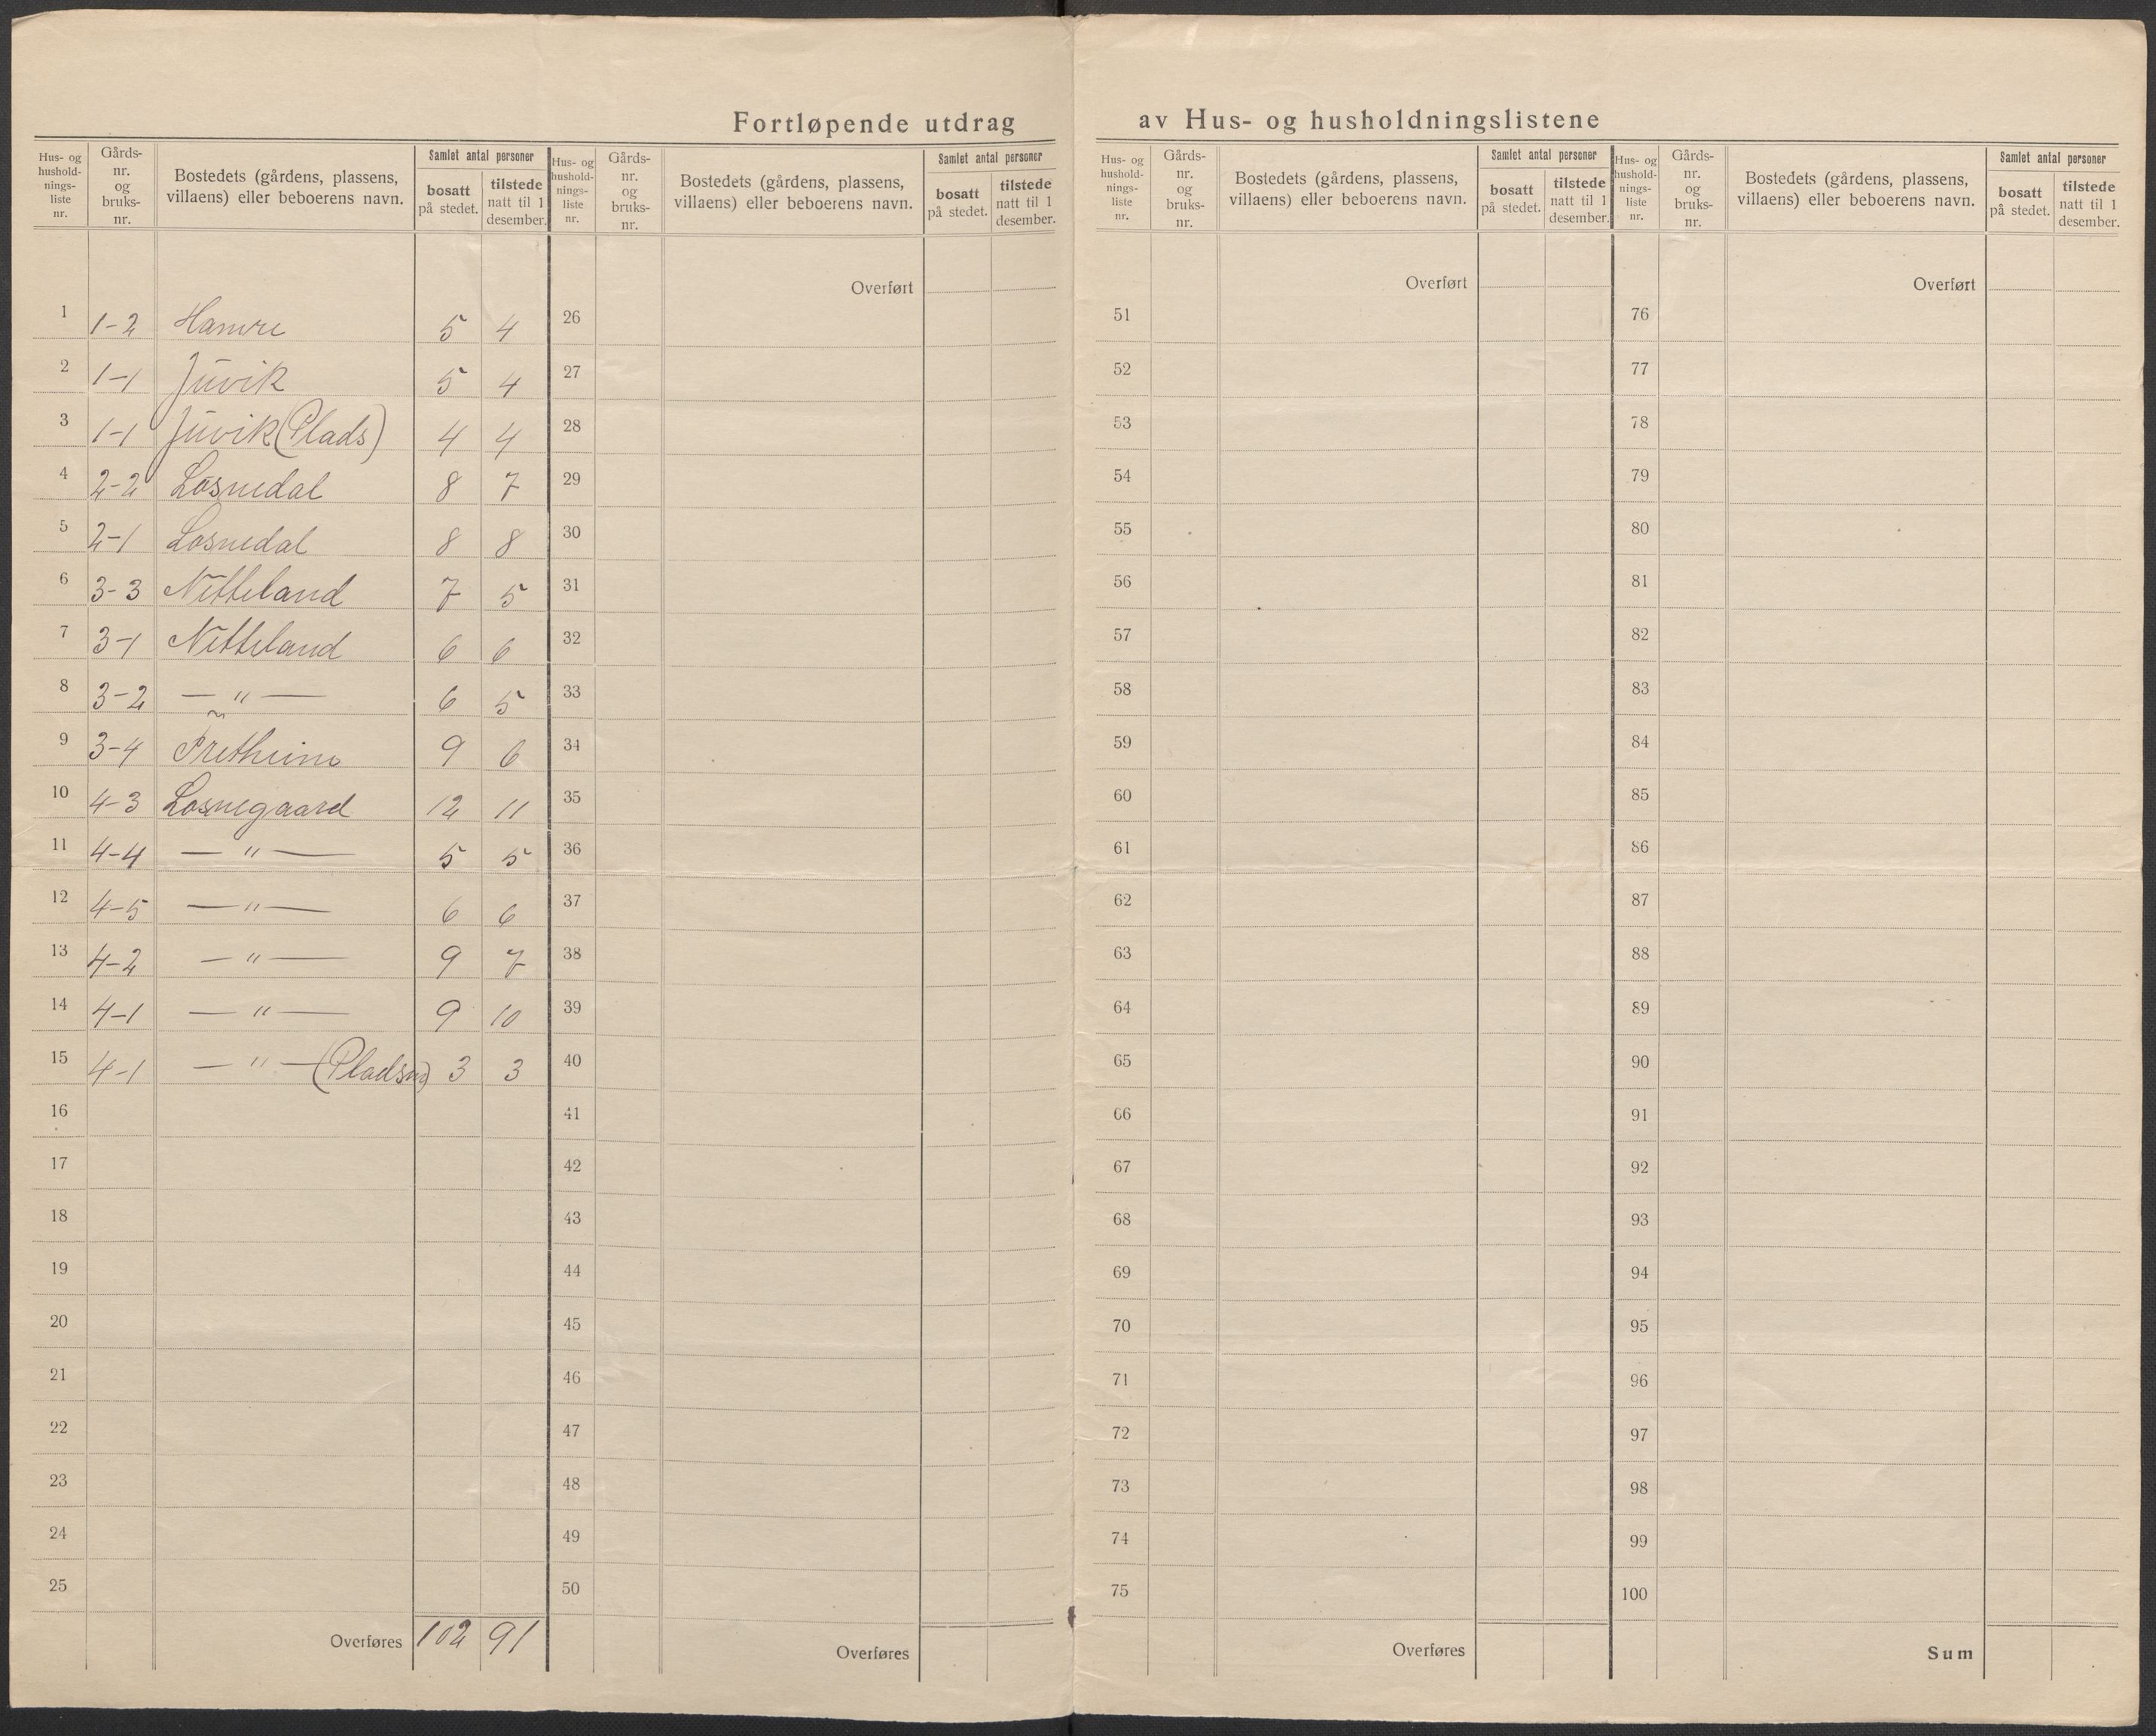 Fortløpende utdrag av Hus- og husholdningslistene
Hus- og hushold-nings-liste nr. Gårds-nr. og bruks-nr. Bostedets (gårdens, plassens, villaens) eller beboerens navn. Samlet antal personer bosatt på stedet. tilstede natt til 1 desember.
1 1-2 Hamre 5 4
2 1-1 Juvik 5 4
3 1-1 Juvik (Plads) 4 4
4 2-2 Losnedal 8 7
5 2-1 Losnedal 8 8
6 3-3 Nitteland 7 5
7 3-1 Nitteland 6 6
8 3-2 — " — 6 5
9 3-4 Fretheim 9 6
10 4-3 Losnegaard 12 11
11 4-4 — " — 5 5
12 4-5 — " — 6 6
13 4-2 — " — 9 7
14 4-1 — " — 9 10
15 4-1 — " — (Pladsen) 3 3
16
17
18
19
20
21
22
23
24
25
Overføres 102 91
Hus- og hushold-nings-liste nr. Gårds-nr. og bruks-nr. Bostedets (gårdens, plassens, villaens) eller beboerens navn. Samlet antal personer bosatt på stedet. tilstede natt til 1 desember.
Overført
26
27
28
29
30
31
32
33
34
35
36
37
38
39
40
41
42
43
44
45
46
47
48
49
50
Overføres
Hus- og hushold-nings-liste nr. Gårds-nr. og bruks-nr. Bostedets (gårdens, plassens, villaens) eller beboerens navn. Samlet antal personer bosatt på stedet. tilstede natt til 1 desember.
Overført
51
52
53
54
55
56
57
58
59
60
61
62
63
64
65
66
67
68
69
70
71
72
73
74
75
Overføres
Hus- og hushold-nings-liste nr. Gårds-nr. og bruks-nr. Bostedets (gårdens, plassens, villaens) eller beboerens navn. Samlet antal personer bosatt på stedet. tilstede natt til 1 desember.
Overført
76
77
78
79
80
81
82
83
84
85
86
87
88
89
90
91
92
93
94
95
96
97
98
99
100
Sum